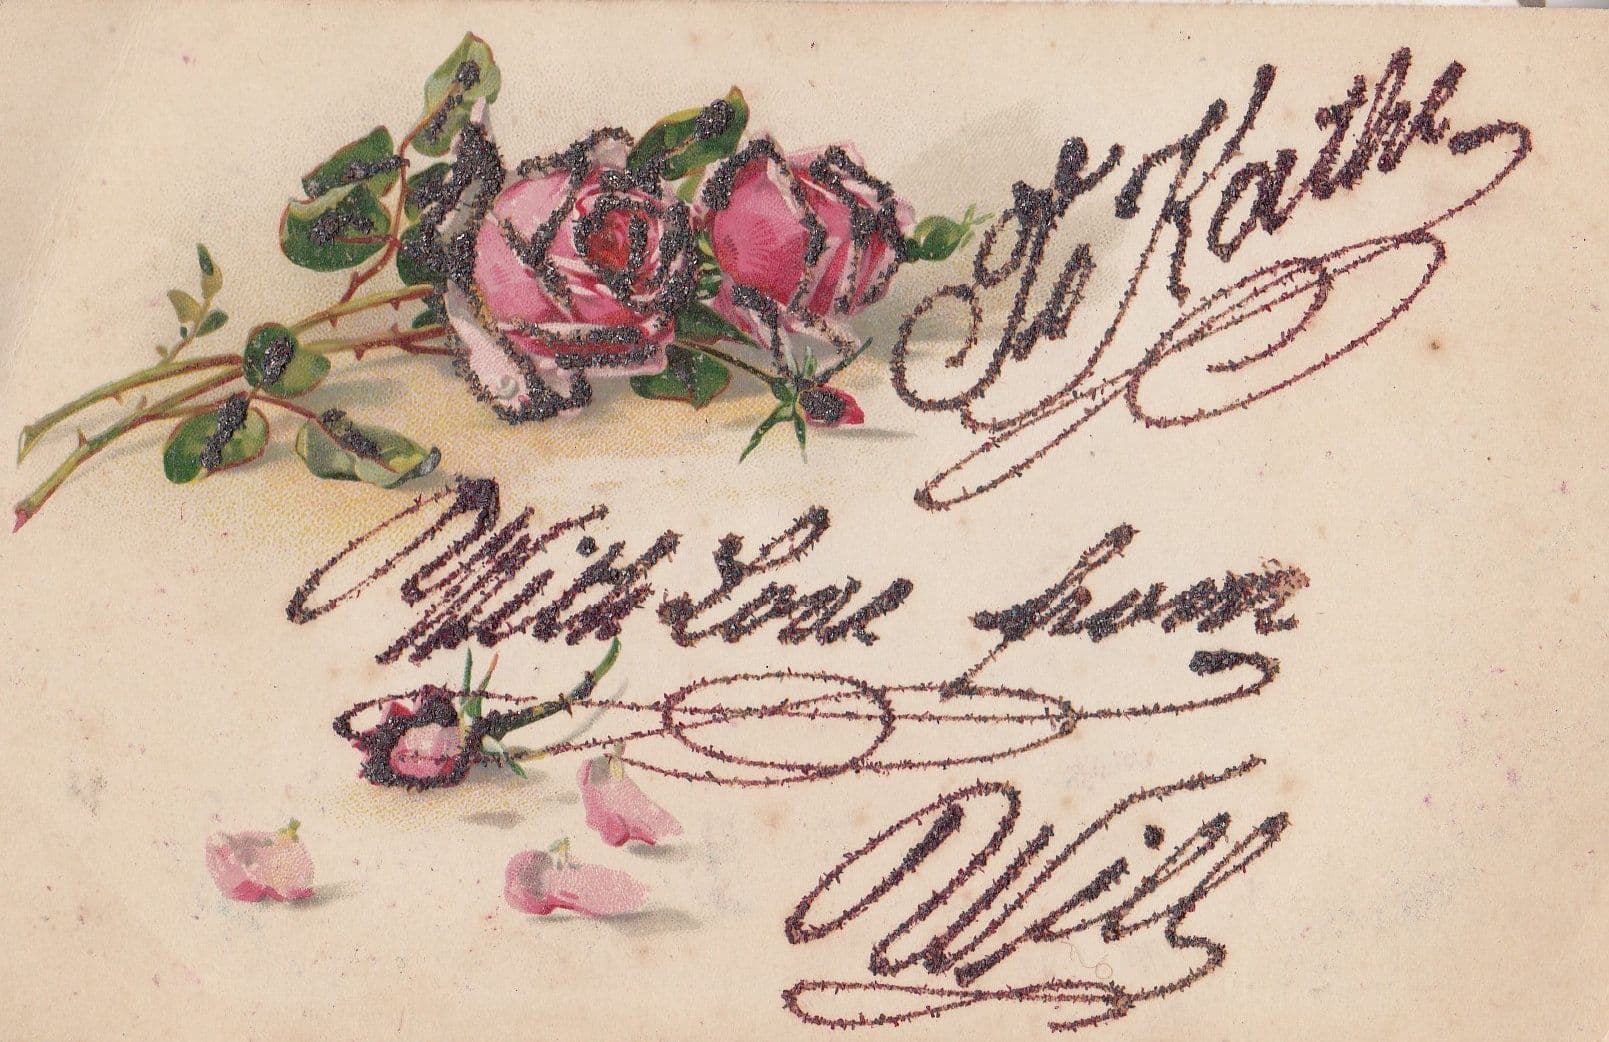 To Kathe
With Love from
Will